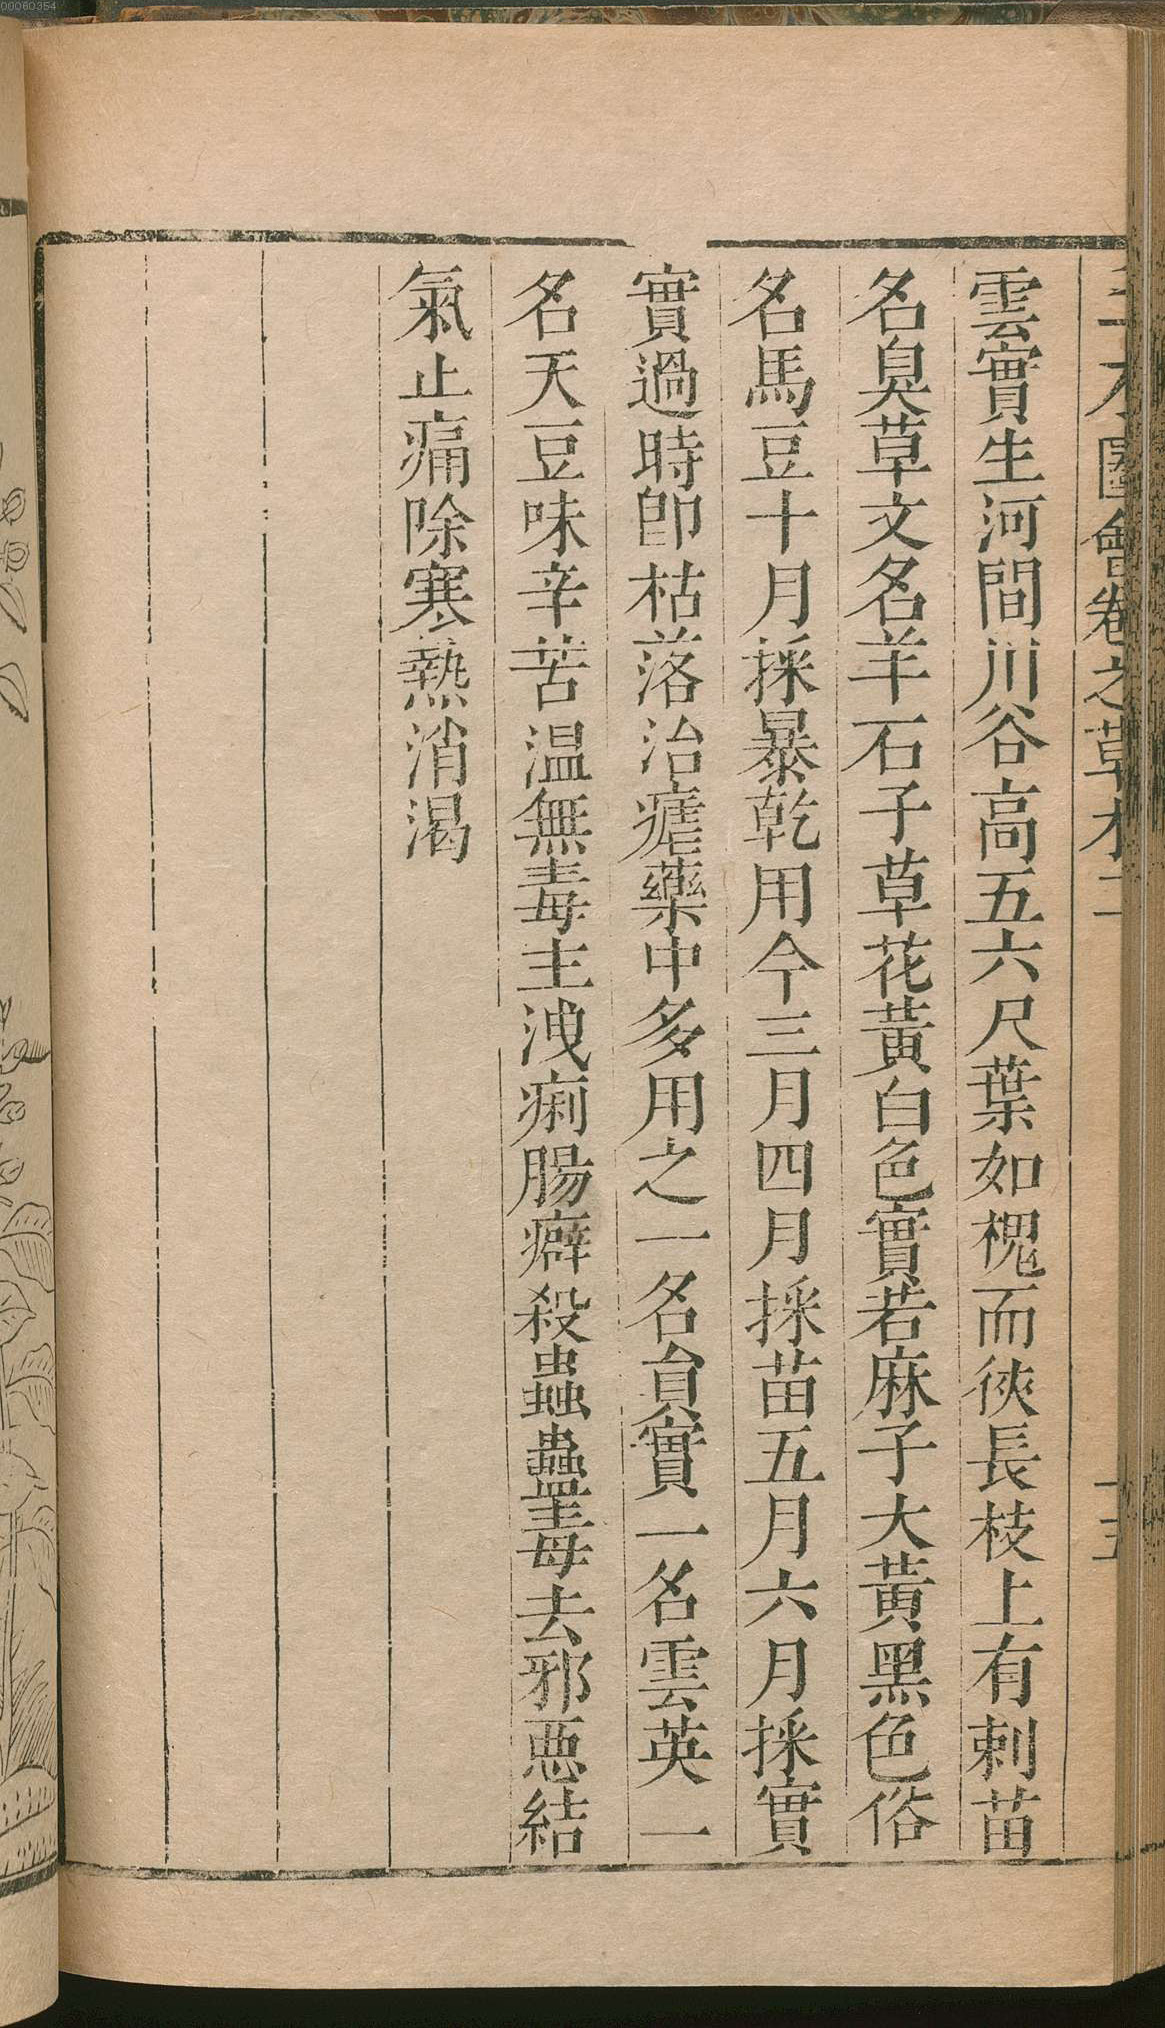 圖會卷之草木二
十五
雲實生河間川谷高五六尺葉如槐而狹長枝上有刺苗
名臭草文名羊石子草花黃白色實若麻子大黃黑色俗
名馬豆十月採暴乾用今三月四月採苗五月六月採實
實過時卽枯落治瘧藥中多用之一名員實一名雲英一
名天豆味辛苦温無毒主洩痢腸癖殺蟲蠱毒去邪惡結
氣止痛除寒熱消渴
00060354